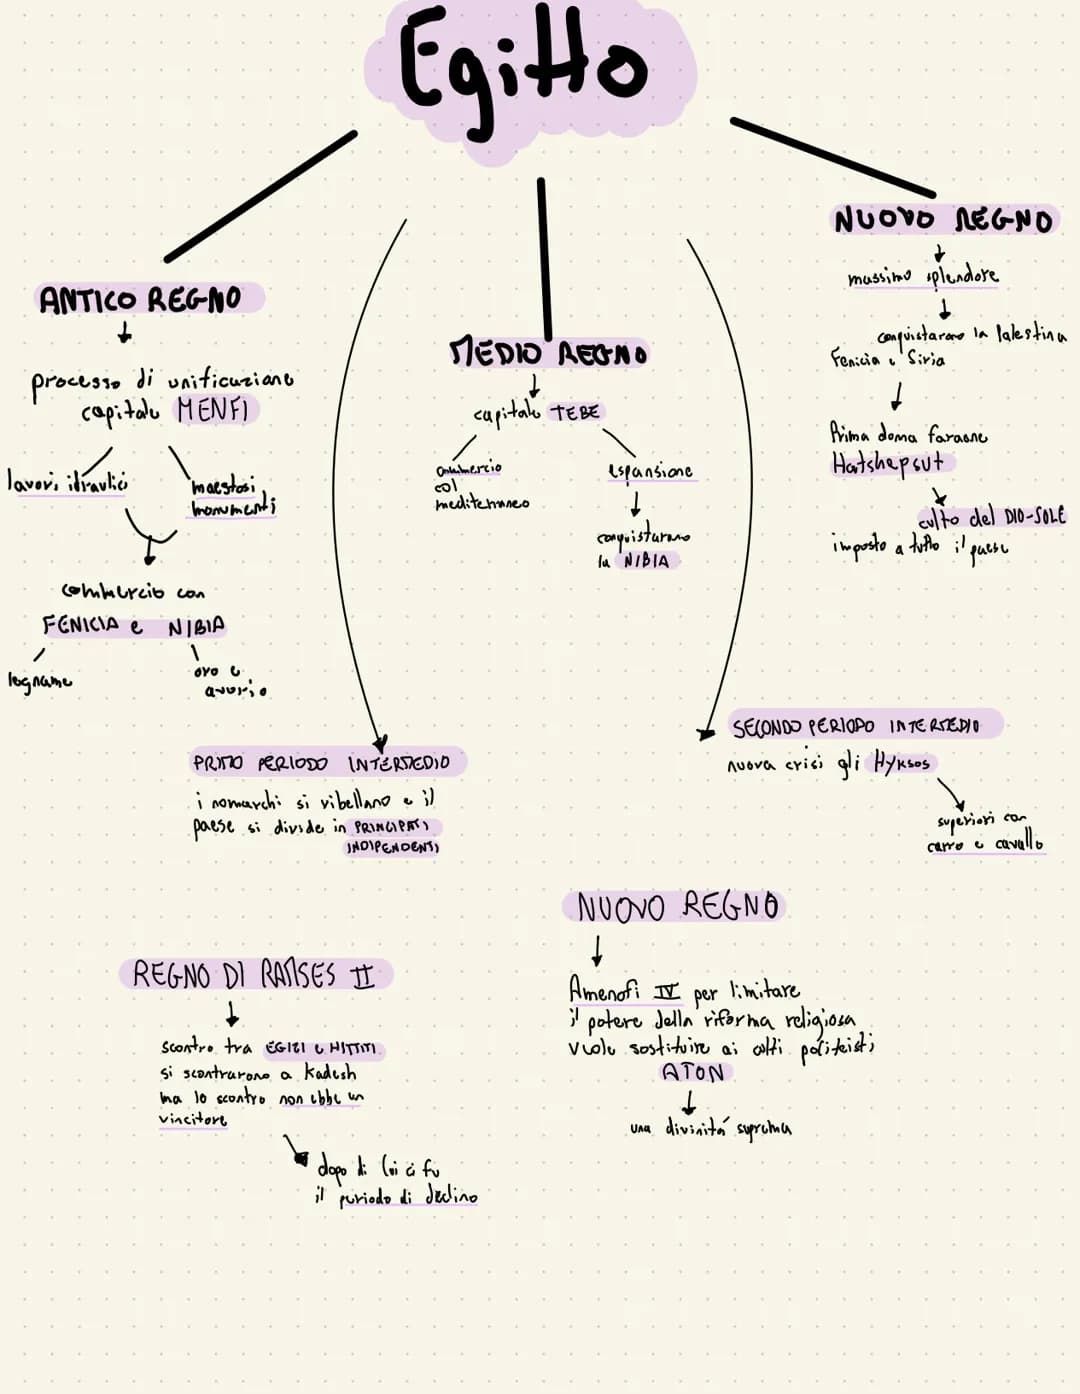 Egitto
ANTICO REGNO
processo di unificazione
capitale MENFI
lavori idraulici
maestosi
monumenti
commercio con
FENICIA e NIBIA
legname
oro e
avorio
MEDIO REGNO
capitale TEBE
commercio
col
mediterraneo
espansione
conquistarono
la NIBIA
NUOVO REGNO
massimo splendore
conquistarono la Palestina
Fenicia e Siria
Prima donna faraone
Hatshepsut
culto del DIO-SOLE
imposto a tutto il paese
PRIMO PERIODO INTERMEDIO
i nomarchi si ribellano e il
paese si divide in PRINCIPATI
INDIPENDENTI
SECONDO PERIODO INTERMEDIO
nuova crisi gli Hyksos
superiori con
carro e cavallo
REGNO DI RAMSES II
scontro tra EGIZI e HITTITI
si scontrarono a Kadesh
ma lo scontro non ebbe un
vincitore
dopo di lui ci fu
il periodo di declino
NUOVO REGNO
Amenofi IV per limitare
il potere della riforma religiosa
vuole sostituire ai culti politeisti
ATON
una divinitá suprema